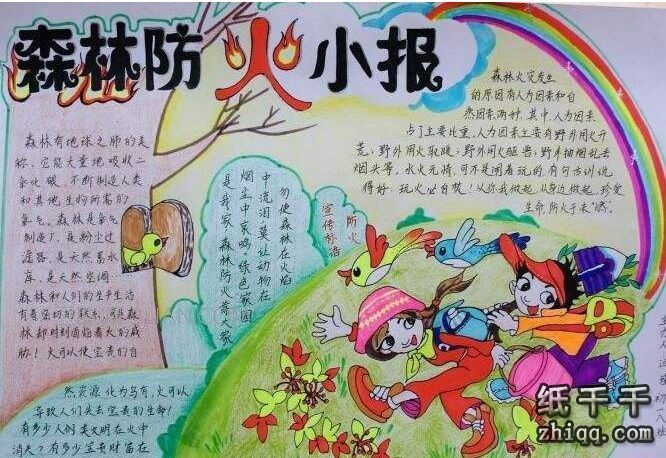 森林防火小报
森林有地球之肺的美
称，它能大量地吸收二
氧化碳，不断制造人类
和其他生物所需的
氧气。森林是氧气
制造厂，是粉尘过
滤器，是天然蓄水
库，是天然空调。
森林和人们的生产生活
有着密切的联系，可是森
林却时刻面临着火的威
胁！火可以使宝贵的自
然资源化为乌有，火可以
导致人们失去宝贵的生命！
有多少人们类文明在火中
消失？有多少宝贵财富在
防火
宣传标语
勿使森林在火焰
中流泪 莫让动物在
烟尘中哀鸣。绿色家园
是我家 森林防火靠大家
森林火灾发生
的原因有人为因素和自
然因素两种，其中，人为因素
占了主要比重，人为因素主要有野外用火开
荒，野外用火取暖；野外用火驱兽；野外抽烟乱丢
烟头等。水火无情，可不是闹着玩的，有句古训说
得好：玩火必自焚！从你我做起，从身边做起，珍爱
生命，防火于未"燃"。
纸千千
zhiqq.com